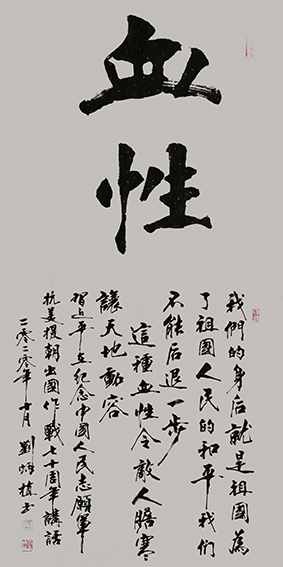 血性
我們的身后就是祖國為
了祖國人民的和平我們
不能后退一步
這種血性令敵人膽寒
讓天地動容
習近平在紀念中國人民志願軍
抗美援朝出國作戰七十周年講話
二零二零年十月 劉